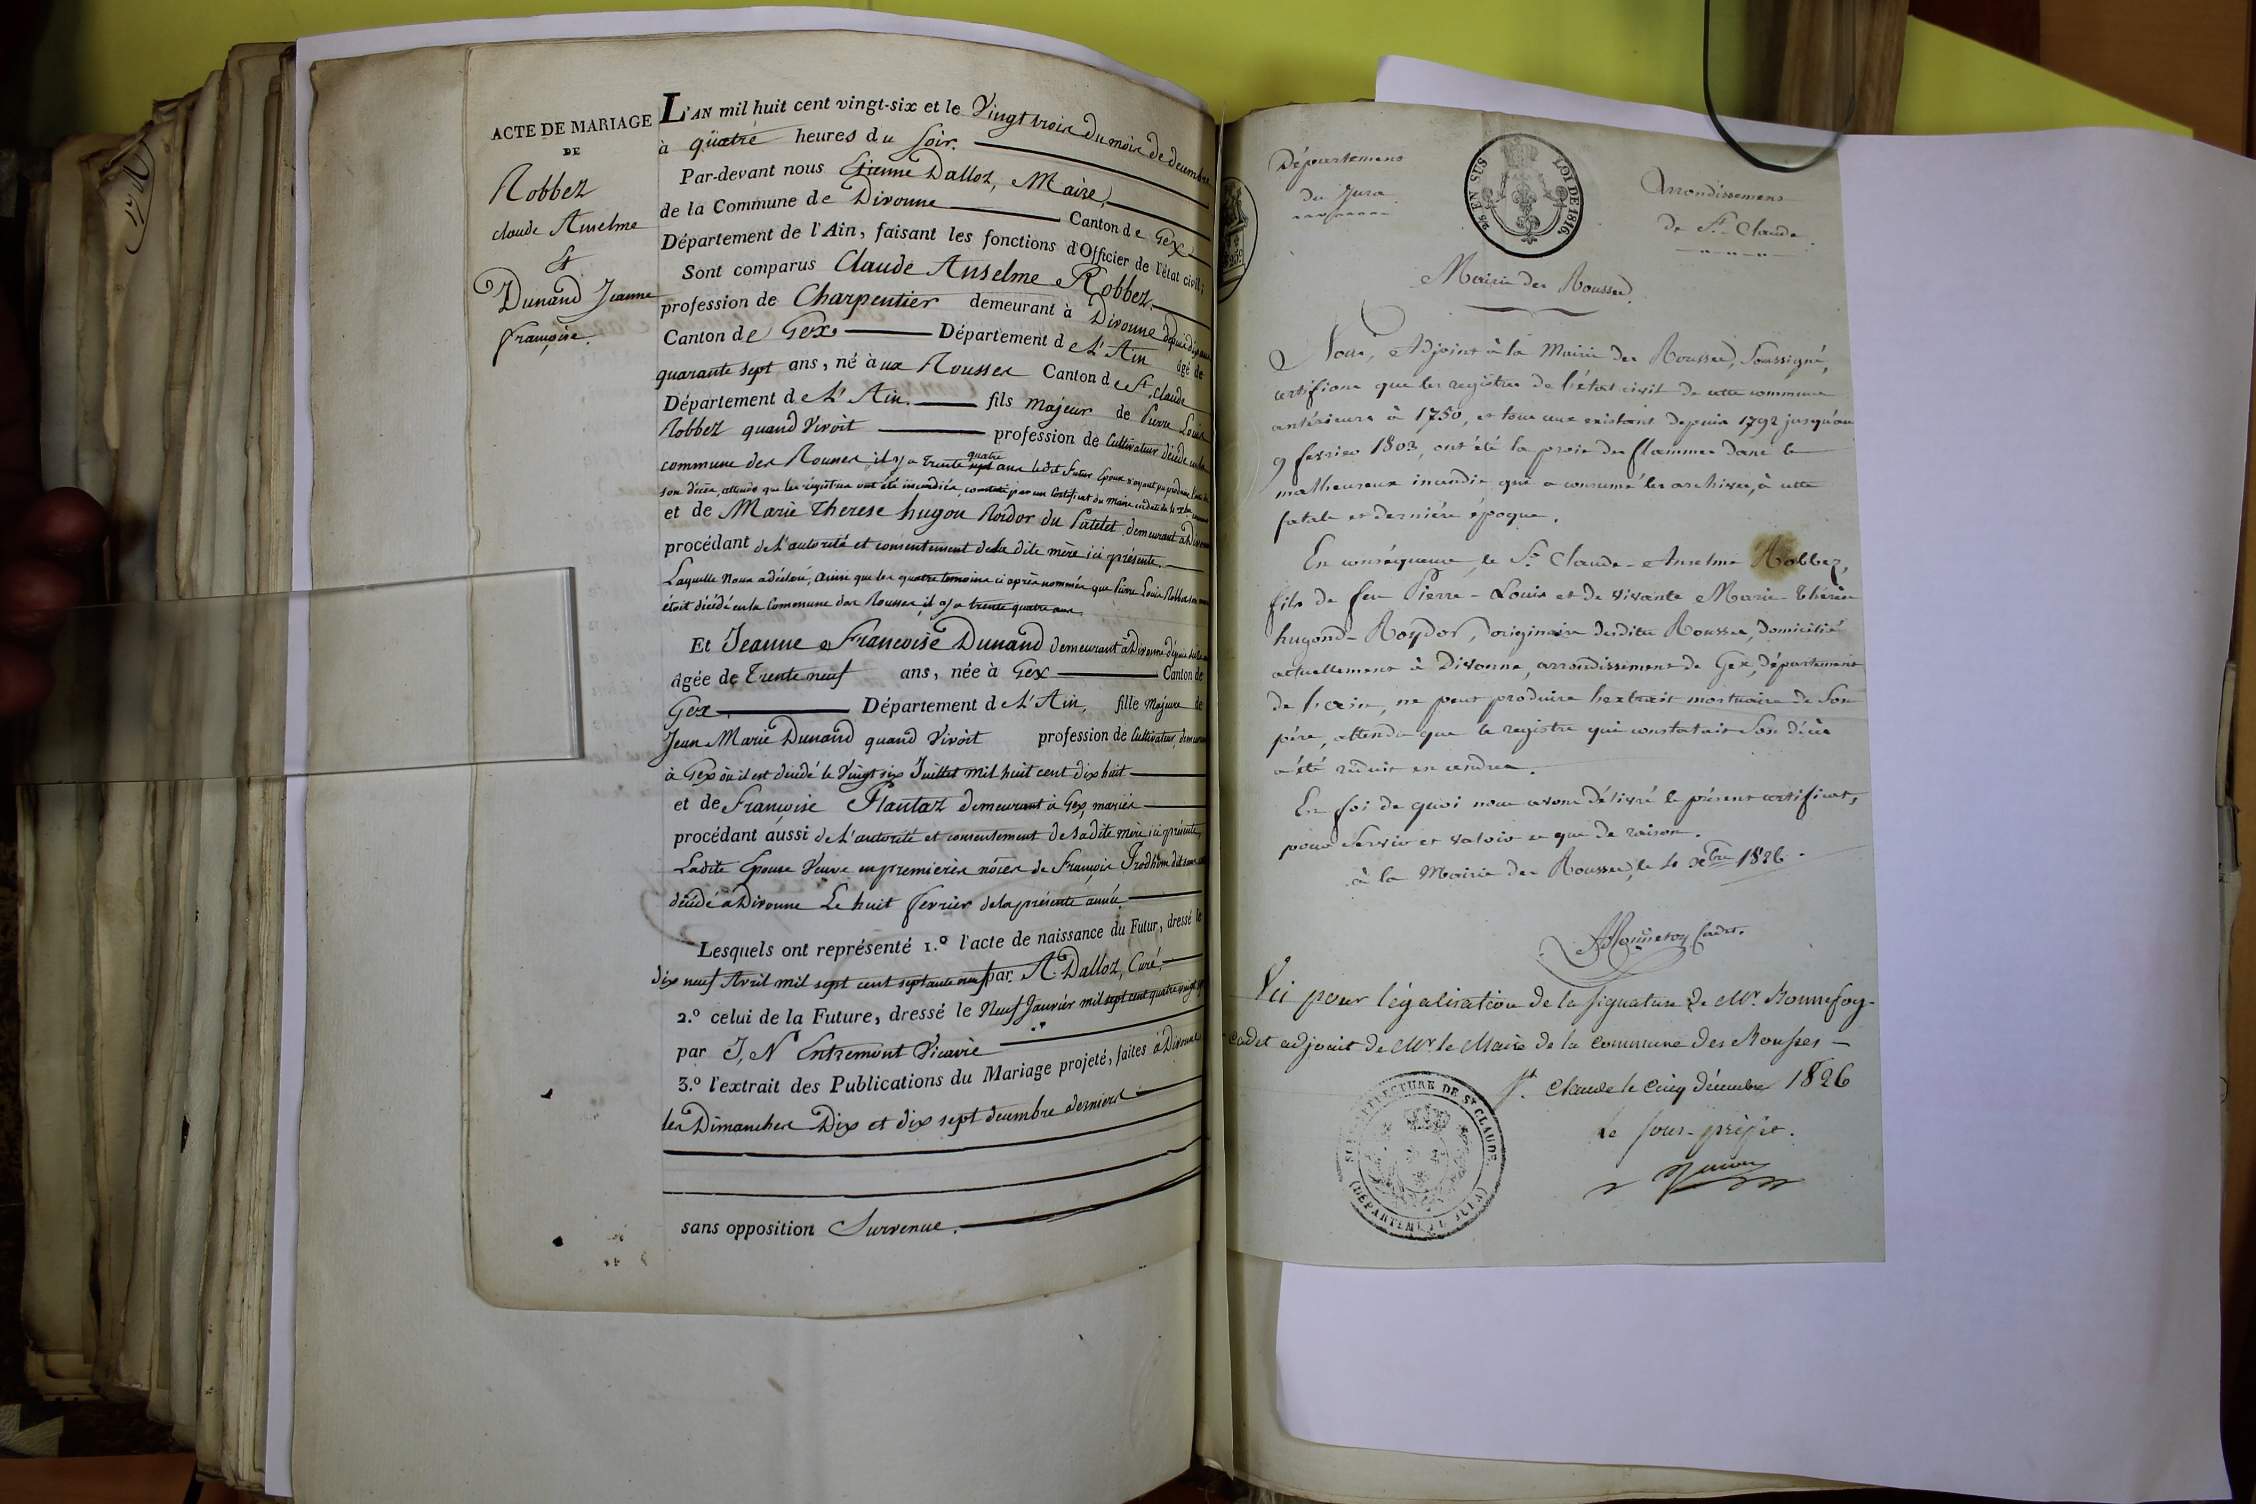 ACTE DE MARIAGE
DE
Robbez
Claude Anselme
&
Dunand Jeanne
françoise.
L'AN mil huit cent vingt-six et le Vingt trois du mois de decembre
à quatre heures du soir.
Par-devant nous Etienne Dalloz, Maire,
de la Commune de Divonne Canton de Gex
Département de l'Ain, faisant les fonctions d'Officier de l'état civil;
Sont comparus Claude Anselme Robbez
profession de Charpentier demeurant à Divonne depuis
Canton de Gex Département de L'Ain âgé de
quarante sept ans, né à aux Rousses Canton de St. Claude
Département de L'Ain. fils majeur de Pierre Louis
Robbez quand vivoit profession de Cultivateur décédé en la
commune des Rousses, il y a trente quatre ans le dit futur Epoux n'ayant pu produire
son décès, attendu que les registres ont été incendiés, constaté par un Certificat du Maire en date du
et de Marie Therese hugon Roidor du Patelet demeurant à Divonne
procédant de L'autorité et consentement de la dite mère ici présente.
Laquelle Nous a déclaré, ainsi que les quatre temoins ci après nommés que Pierre Louis Robbez son mari
étoit décédé en la Commune des Rousses, il y a trente quatre ans.
Et Jeanne Françoise Dunand demeurant à Divonne depuis
âgée de trente neuf ans, née à Gex Canton de
Gex Département de L'Ain, fille Majeure de
Jean Marie Dunand quand vivoit profession de Cultivateur, demeurant
à Gex où il est décédé le Vingt six Juillet mil huit cent dix huit
et de Françoise Plantaz demeurant à Gex, mariés
procédant aussi de L'autorité et consentement de sadite mère ici présente,
Ladite Epouse Veuve en premières nôces de François Prodhom dit
décédé à Divonne Le huit fevrier de la présente année.
Lesquels ont représenté 1.º l'acte de naissance du Futur, dressé le
dix neuf Avril mil sept cent septante neuf par Dalloz, Curé,
2.º celui de la Future, dressé le Neuf Janvier mil sept cent quatre vingt
par J, N Entremont Vicaire
3.º l'extrait des Publications du Mariage projeté, faites à Divonne
les Dimanches Dix et dix sept decembre derniers
sans opposition Survenue.
Département
du Jura
EN SUS
LOI DE 1816.
Arrondissement
de St. Claude.
Mairie des Rousses.
Nous, Adjoint à la Mairie des Rousses, Soussigné,
certifions que les registres de l'état civil de cette commune
antérieurs à 1750, et tous ceux existant depuis 1792 jusqu'au
9 fevrier 1803, ont été la proie des flammes dans le
malheureux incendie qui a consumé les archives, à cette
fatale et dernière époque.
En conséquence, le Sr. Claude-Anselme Robbez,
fils de feu Pierre-Louis et de vivante Marie-Thérèse
hugond-Roydor, originaire desdites Rousses, domicilié
actuellement à Divonne, arrondissement de Gex, département
de l'ain, ne peut produire l'extrait mortuaire de Son
père, attendu que le registre qui constatait Son décès
a été réduit en cendres.
En foi de quoi nous avons délivré le présent certificat,
pour Servir et valoir ce que de raison.
à la Mairie des Rousses, le 4 Xbre 1826.
Bonnefoy Cadet.
Vu pour légalisation de la signature de Mr. Bonnefoy-
cadet adjoint de Mr le Maire de la commune des Rousses
St. Claude le cinq décembre 1826
Le sous-préfet.
SOUS-PRÉFECTURE DE ST CLAUDE
(DÉPARTEMt DU JURA)